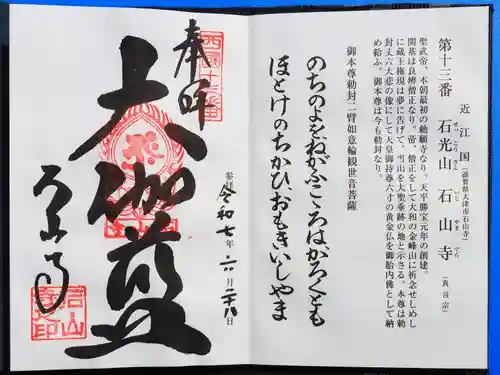 第十三番
近江国（滋賀県大津市石山寺）
石光山 石山寺（真言宗）
せっこうざん いしやまでら
聖武帝、本朝最初の勅願寺なり。天平勝宝元年の創建。
開基は良辨僧正なり。帝、僧正をして大和の金峰山に祈念せしめし
に蔵王権現は夢に告げて、当山を大聖垂跡の地と示さる。本尊は勅
封丈六大悲の像にして天皇御持尊六寸の黄金仏を御胎内佛として納
め給ふ。御本尊は今も勅封なり。
御本尊勅封二臂如意輪観世音菩薩
のちのよをねがふこゝろはかろくとも
ほとけのちかひおもきいしやま
西国十三番
奉拝
大伽藍
石山寺
石山寺之印
参拝 令和七年 六月 二十八日